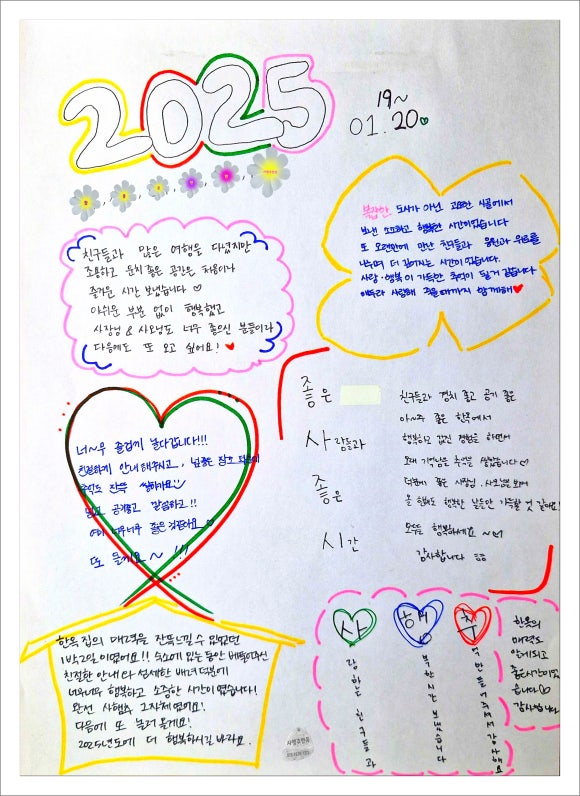 2025
19~
01.20
친구들과 많은 여행을 다녔지만
조용하고 운치 좋은 공간은 처음이라
즐거운 시간 보냈습니다♡
아쉬운 부분 없이 행복했고
사장님 & 사모님도 너무 좋으신 분들이라
다음에도 또 오고 싶어요! ♥
복잡한 도시가 아닌 고요한 시골에서
보낸 소소하고 행복한 시간이었습니다
또 오랜만에 만난 친구들과 응원과 위로를
나누며 더 깊어지는 시간이었습니다.
사랑·행복이 가득한 추억이 된거 같습니다
얘들아 사랑해 죽을때까지 함께해♥
너~무 즐겁게 놀다갑니다!!!
친절하게 안내해주시고, 넓은
추억도 잔뜩 쌓아가요
맑고 공기좋고 깔끔하고!!
여기 너무너무 좋은 것같아요♡
또 올게요~!!!
좋은
사람들과
좋은
시간
친구들과 경치 좋고 공기 좋은
아~주 좋은 한옥에서
행복하고 값진 경험을 하면서
오래 기억남을 추억을 쌓았습니다♡
덕분에 좋은 사장님, 사모님 뵈어
올 해에도 행복한 날들만 가득할 것 같아요!
모두들 행복하세요~♡
감사합니다
한옥 집의 매력을 잔뜩 느낄 수 있었던
1박2일이였어요!! 숙소에 있는 동안 베풀어주신
친절한 안내와 섬세한 배려 덕분에
너무너무 행복하고 소중한 시간이였습니다!
완전 사행추 그 자체였어요!
다음에 또 놀러올게요!
2025년도에 더 행복하시길 바라요.
사랑하는 친구들과
행복한 시간 보냈습니다
추억 만들어주셔서 감사해요
한옥의
매력도
알게되고
좋은시간이었
습니다♡
감사합니다